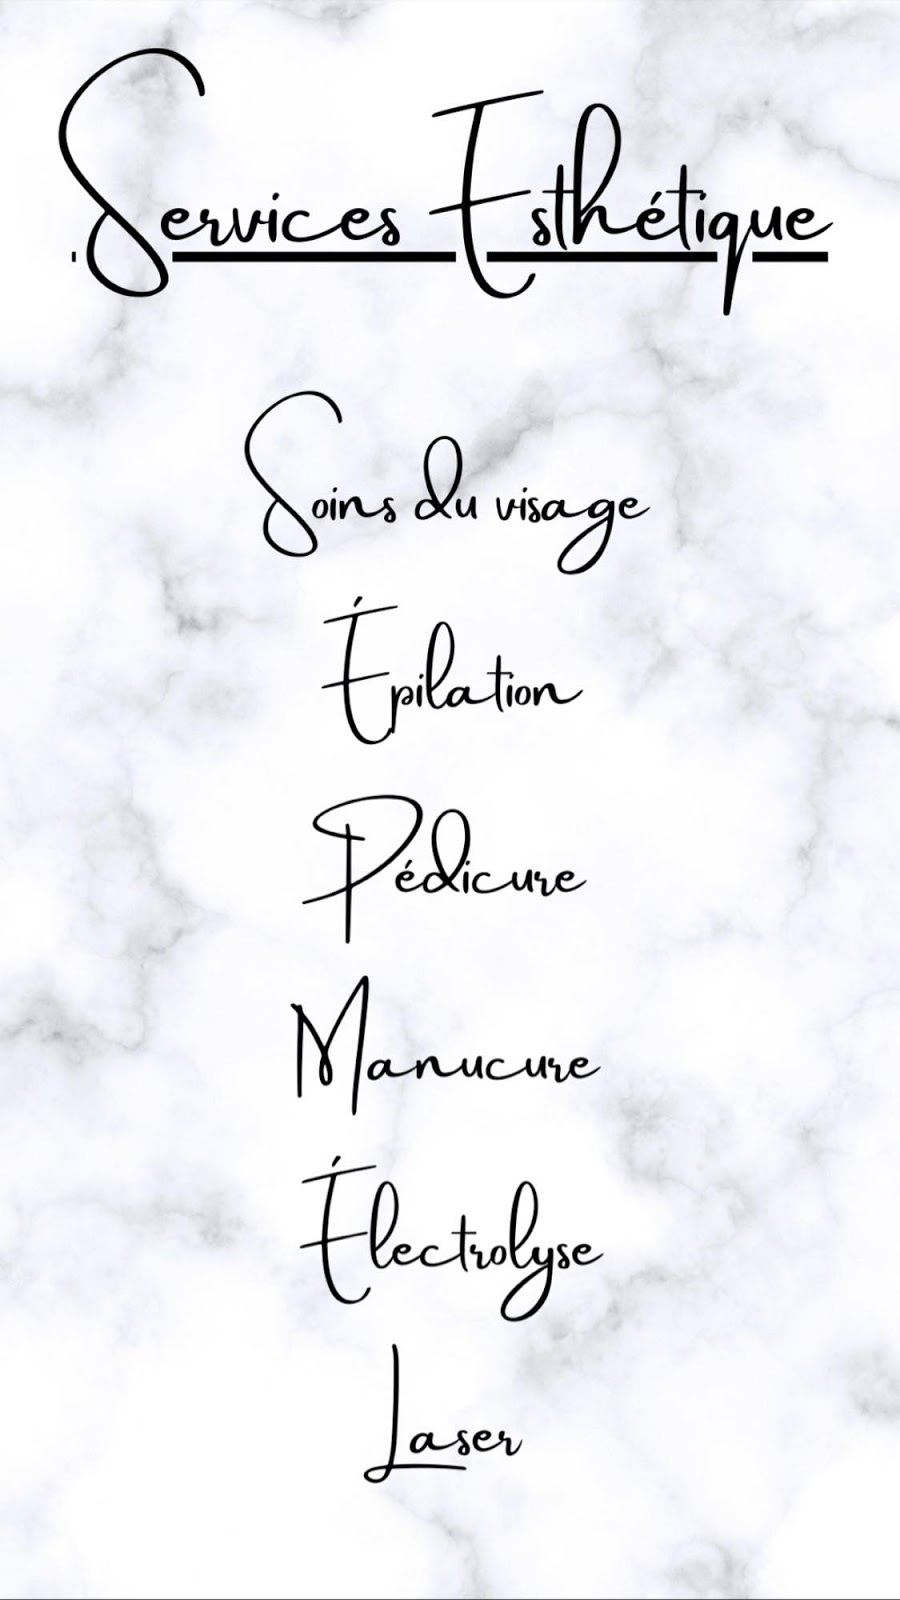 Services Esthétique
Soins du visage
Épilation
Pédicure
Manucure
Électrolyse
Laser